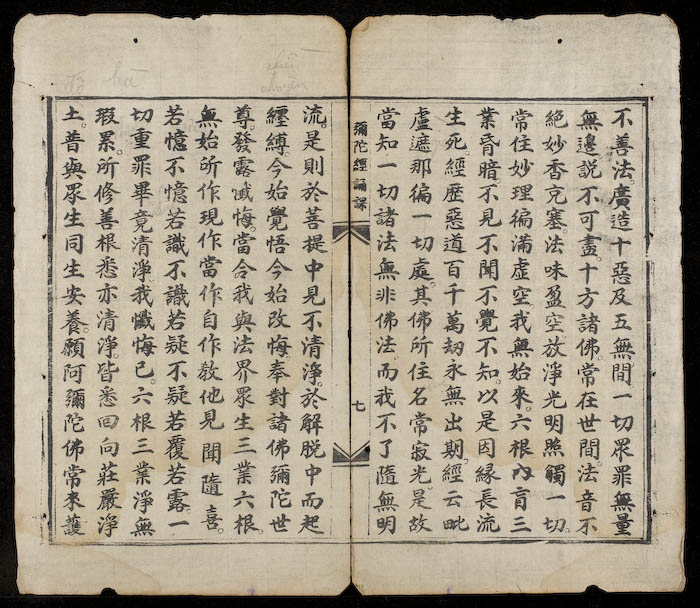 不善法。廣造十惡及五無間。一切眾罪無量
無邊說不可盡。十方諸佛。常在世間。法音不
絕妙香充塞。法味盈空放淨光明照觸一切。
常住妙理徧滿虛空。我無始來。六根內盲三
業昏暗不見不聞不覺不知。以是因緣長流
生死經歷惡道百千萬劫永無出期。經云毗
盧遮那徧一切處。其佛所住名常寂光是故
當知一切諸法無非佛法。而我不了隨無明
彌陀經誦課
七
流。是則於菩提中見不清淨。於解脫中而起
纏縛。今始覺悟今始改悔。奉對諸佛彌陀世
尊。發露懺悔。當令我與法界眾生三業六根。
無始所作現作當作自作教他見聞隨喜。
若憶不憶若識不識若疑不疑若覆若露。一
切重罪畢竟清淨。我懺悔已。六根三業淨無
瑕累。所修善根悉亦清淨。皆悉回向莊嚴淨
土。普與眾生同生安養。願阿彌陀佛常來護
hà